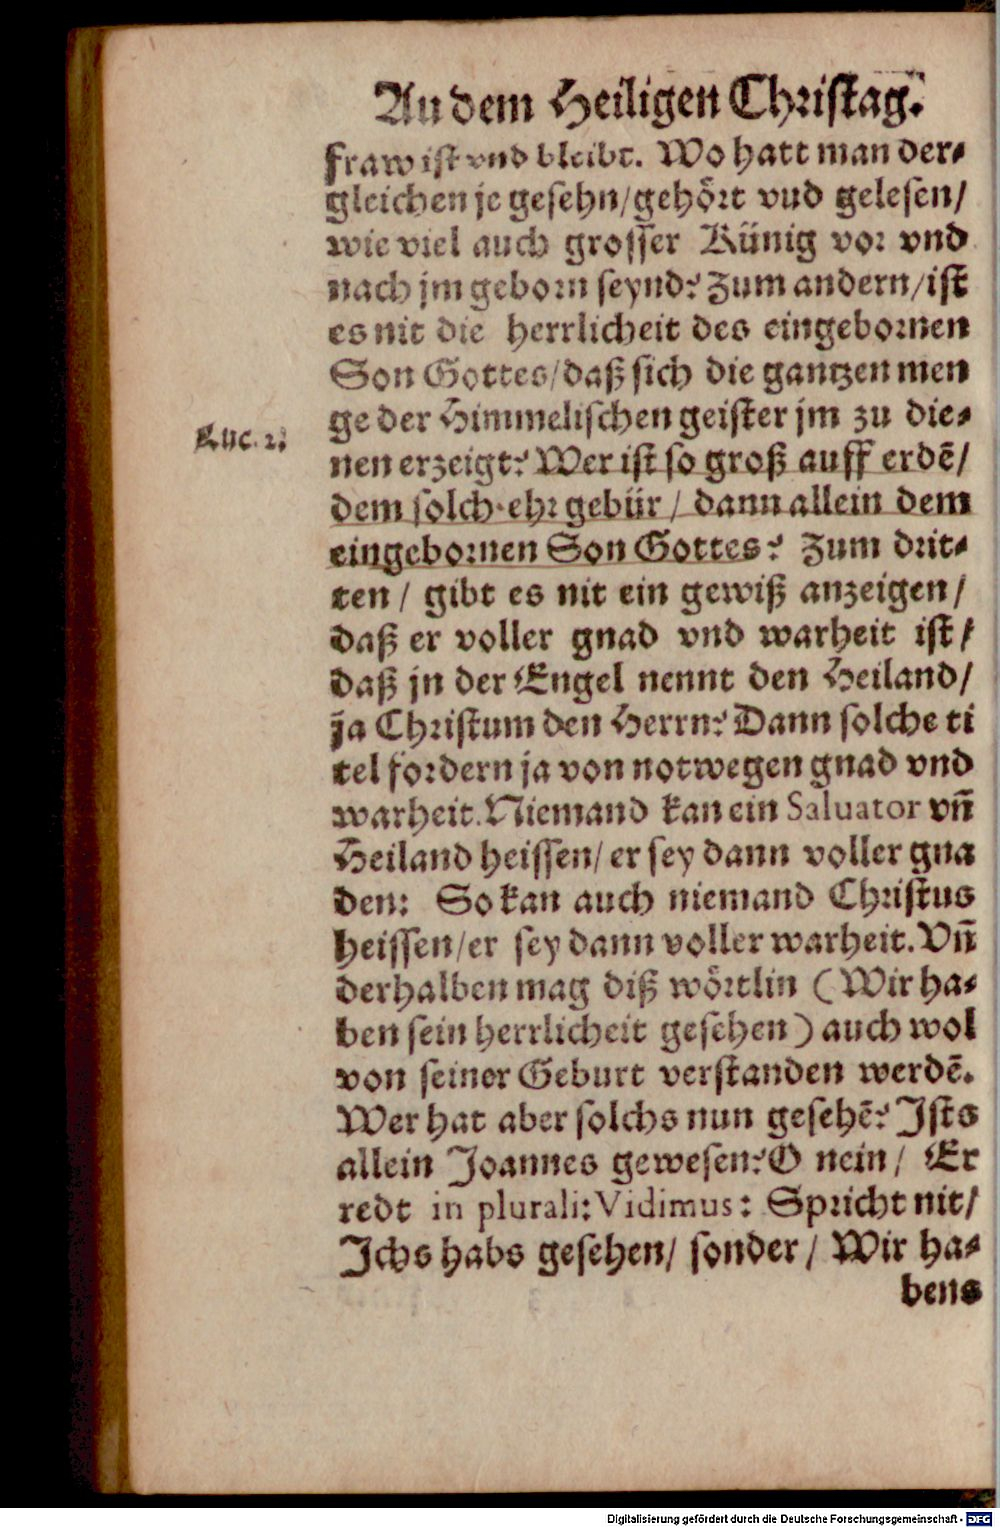 An dem Heiligen Christag.
fraw ist vnd bleibt. Wo hatt man der-
gleichen je gesehn/gehört vnd gelesen/
wie viel auch grosser Künig vor vnd
nach jm geborn seynd? Zum andern/ist
es nit die herrlicheit des eingebornen
Son Gottes/daß sich die gantzen men
ge der Himmelischen geister jm zu die-
Luc. 2.
nen erzeigt? Wer ist so groß auff erdē/
dem solch ehr gebür / dann allein dem
eingebornen Son Gottes? Zum drit-
ten / gibt es nit ein gewiß anzeigen /
daß er voller gnad vnd warheit ist /
daß jn der Engel nennt den Heiland/
ja Christum den Herrn? Dann solche ti
tel fordern ja von notwegen gnad vnd
warheit. Niemand kan ein Saluator vñ
Heiland heissen/ er sey dann voller gna
den: So kan auch niemand Christus
heissen/er sey dann voller warheit. Vñ
derhalben mag diß wörtlin (Wir ha-
ben sein herrlicheit gesehen) auch wol
von seiner Geburt verstanden werdē.
Wer hat aber solchs nun gesehē? Ists
allein Joannes gewesen? O nein / Er
redt in plurali: Vidimus: Spricht nit/
Ichs habs gesehen/ sonder / Wir ha-
bens
Digitalisierung gefördert durch die Deutsche Forschungsgemeinschaft - DFG